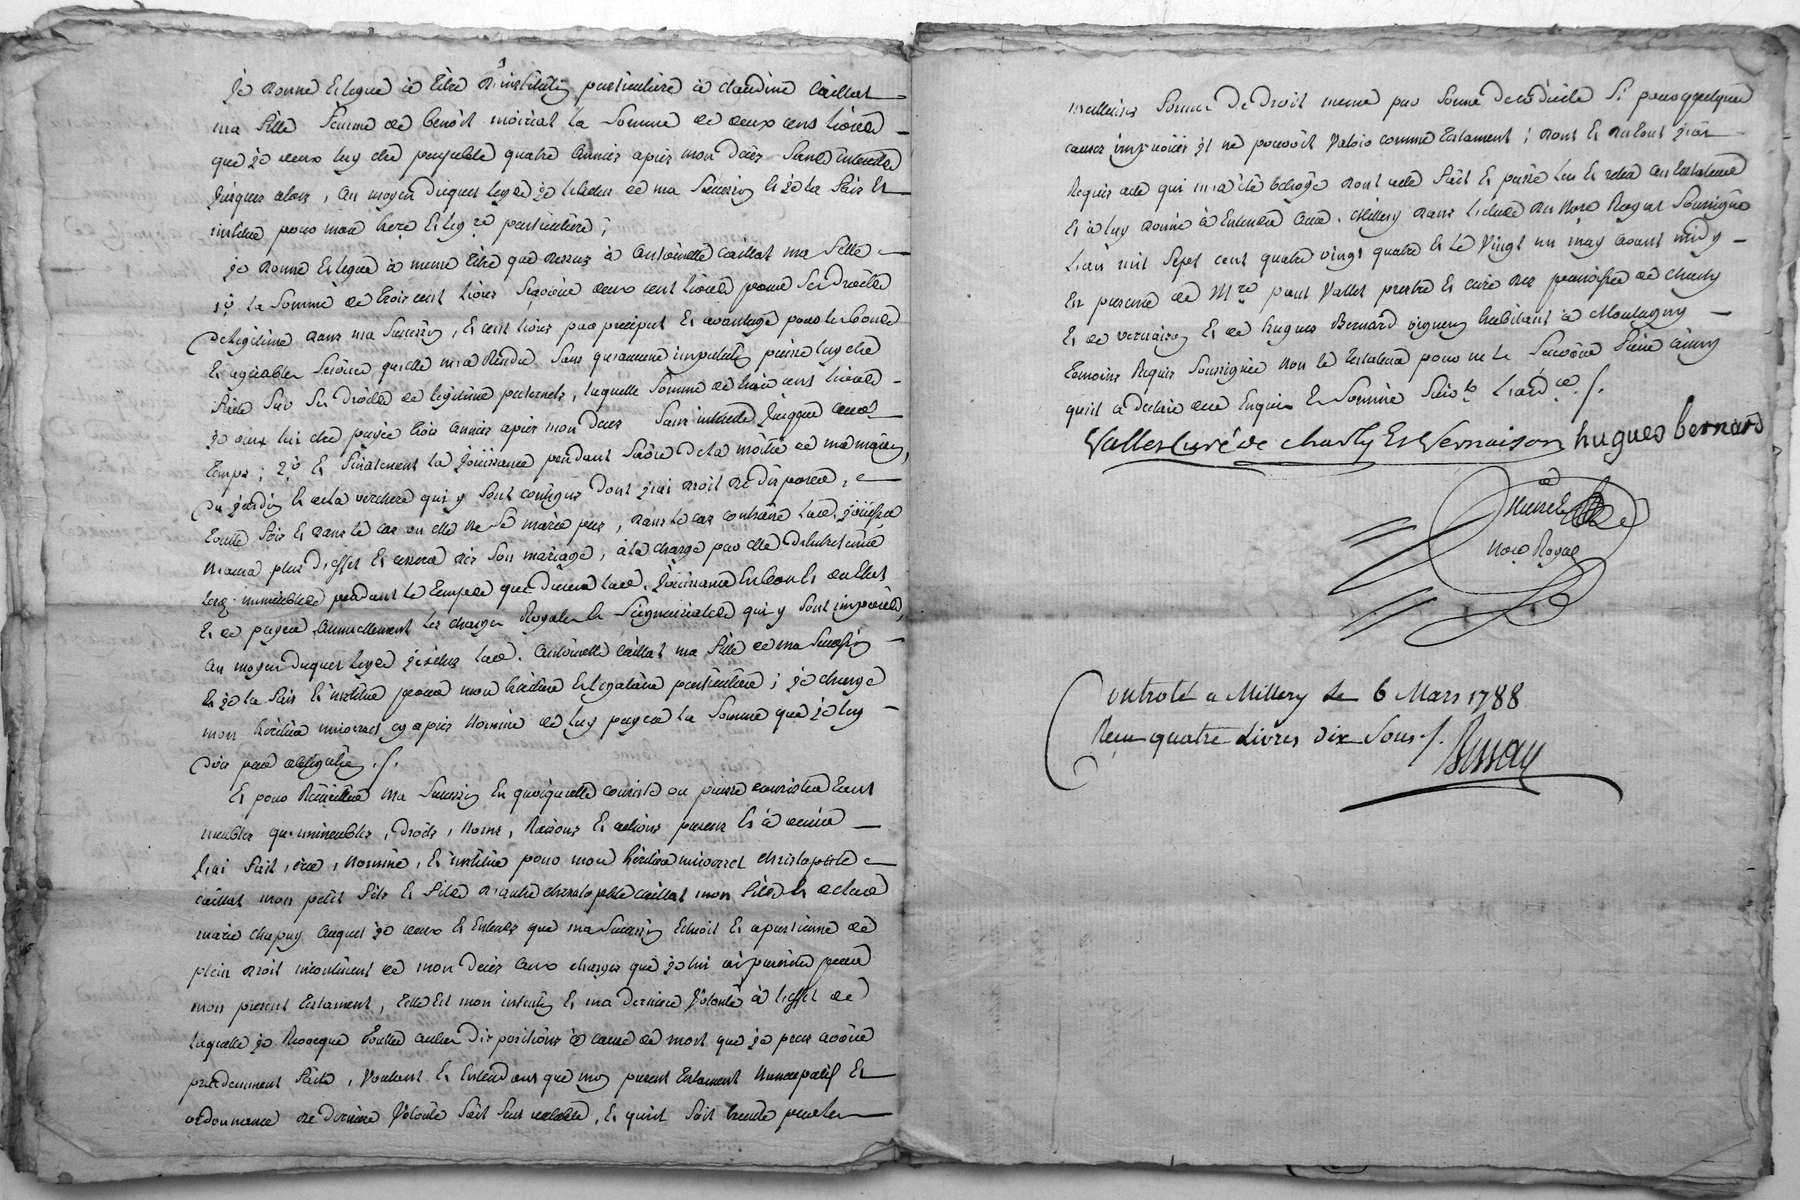 Je donne et legue à titre d'institution particuliere à claudine Caillat
ma fille femme de benoit moiriat la somme de deux cens livres
que je veux luy etre payable quatre années après mon décès sans intérets
jusques alors, au moyen duquel legs je l'exclus de ma succession et je la fais et
institue pour mon here et legre particuliere;
je donne et legue à meme titre que dessus à antoinette caillat ma fille
1° la somme de trois cent livres scavoir deux cent livres pour ses droits
de legitime dans ma succession, et cent livres par preciput et avantage pour les bons
et agréables services quelle m'a rendu sans qu'aucune imputation puisse luy etre
faite sur ses droits de legitime paternels, laquelle somme de trois cens livres
je veux lui etre payée trois années après mon deces sans interets jusques audt
temps; 2° et finalement la jouissance pendant sa vie de la moitié de ma maison,
du jardin et de la verchere qui y sont contigus dont j'ai droit de disposer,
toutte fois et dans le cas ou elle ne se marie pas, dans le cas contraire lade jouissance
n'aura plus d'effet et cessera dès son mariage, à la charge par elle d'entretenir
les immeubles pendant le temps que durera lade jouissance en bon et du état
et de payer annuellement les charges Royales et seigneuriales qui y sont imposées,
au moyen duquel legs j'exclus lade antoinette caillat ma fille de ma succession
et je la fais et institue pour mon héritiere et legataire particuliere; je charge
mon héritier universel cy après nommé de luy payer la somme que je luy
dois par obligation./.
Et pour Recueillir ma succession en quoiquelle consiste ou puisse consister tant
meubles qu'immeubles, droits, noms, Raisons et actions présens et à venir
j'ai fait, crée, nommé, et institué pour mon héritier universel christophle
caillat mon petit fils et fils d'autre christophle caillat mon fils et de
marie chapuy auquel je veux et entends que ma succession echoit et apartienne de
plein droit incontinent de mon décès aux charges que je lui ai prescrites par
mon present testament, telle est mon intention et ma derniere volonté à l'effet de
laquelle je Revoque touttes autres dispositions à cause de mort que je peux avoir
précédemment faites, voulant et entendant que mon present testament nuncupatif et
ordonnance de derniere volonté soit seul valable, et qu'il soit executé par les
meilleures formes de droit meme par forme de codicile si pour quelques
causes imprévües il ne pouvoit valoir comme testament; dont et du tout j'ai
Requis acte qui m'a été octroyé dont acte fait et passé lu et relu au testateur
et à luy donné à entendre aud. Millery dans l'etude du Nore Royal soussigné
l'an mil sept cent quatre vingt quatre et le vingt un may avant midy
en presence de Mre paul Vallet prestre et curé des paroisses de charly
et de vernaison et de hugues Bernard vigneron habitant à Montagny
temoins Requis soussignés non le testateur pour ne le scavoir faire ainsy
qu'il a déclaré de ce enquis et sommé suivt l'ordce./.
Vallet Curé de Charly Et Vernaison hugues bernard
Nore Royal
Controlé a Millery le 6 Mars 1788
Recu quatre Livres dix sous./.